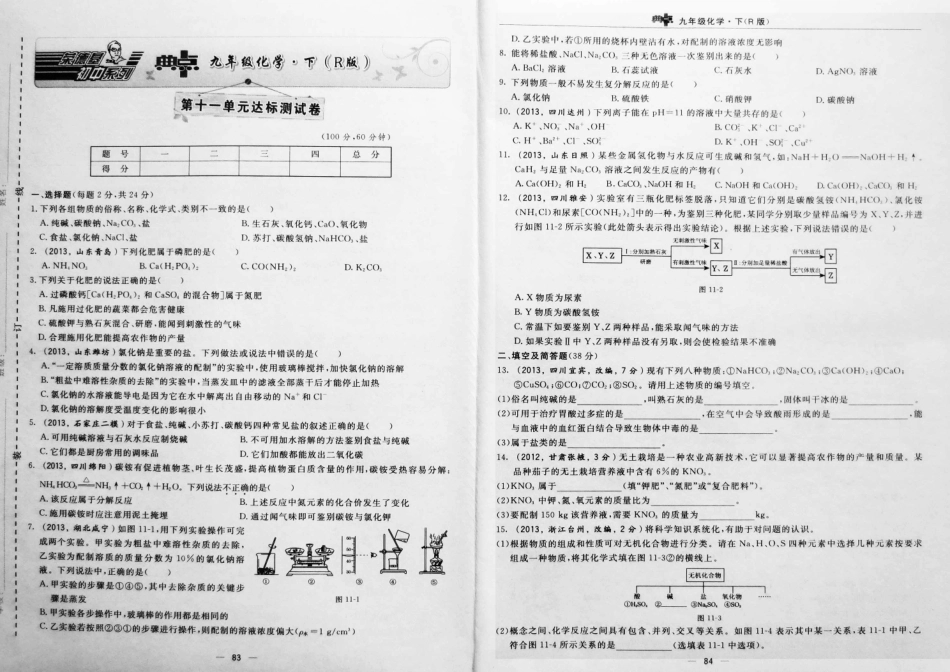 荣德基
初中系列
典点 九年级化学·下(R版)
第十一单元达标测试卷
(100分,60分钟)
题 号 一 二 三 四 总 分
得 分
一、选择题(每题2分,共24分)
1.下列各组物质的俗称、名称、化学式、类别不一致的是( )
A.纯碱、碳酸钠、Na₂CO₃、盐 B.生石灰、氧化钙、CaO、氧化物
C.食盐、氯化钠、NaCl、盐 D.苏打、碳酸氢钠、NaHCO₃、盐
2.(2013,山东青岛)下列化肥属于磷肥的是( )
A.NH₄NO₃ B.Ca(H₂PO₄)₂ C.CO(NH₂)₂ D.K₂CO₃
3.下列关于化肥的说法正确的是( )
A.过磷酸钙[Ca(H₂PO₄)₂和CaSO₄的混合物]属于氮肥
B.凡施用过化肥的蔬菜都会危害健康
C.硫酸钾与熟石灰混合、研磨,能闻到刺激性的气味
D.合理施用化肥能提高农作物的产量
4.(2013,山东潍坊)氯化钠是重要的盐。下列做法或说法中错误的是( )
A.“一定溶质质量分数的氯化钠溶液的配制”的实验中,使用玻璃棒搅拌,加快氯化钠的溶解
B.“粗盐中难溶性杂质的去除”的实验中,当蒸发皿中的滤液全部蒸干后才能停止加热
C.氯化钠的水溶液能导电是因为它在水中解离出自由移动的Na⁺和Cl⁻
D.氯化钠的溶解度受温度变化的影响很小
5.(2013,石家庄二模)对于食盐、纯碱、小苏打、碳酸钙四种常见盐的叙述正确的是( )
A.可用纯碱溶液与石灰水反应制烧碱 B.不可用加水溶解的方法鉴别食盐与纯碱
C.它们都是厨房常用的调味品 D.它们加酸都能放出二氧化碳
6.(2013,四川绵阳)碳铵有促进植物茎、叶生长茂盛,提高植物蛋白质含量的作用,碳铵受热容易分解:
NH₄HCO₃=△=NH₃↑+CO₂↑+H₂O。下列说法不正确的是( )
A.该反应属于分解反应 B.上述反应中氮元素的化合价发生了变化
C.施用碳铵时应注意用泥土掩埋 D.通过闻气味即可鉴别碳铵与氯化钾
7.(2013,湖北咸宁)如图11-1,用下列实验操作可完
成两个实验。甲实验为粗盐中难溶性杂质的去除,
乙实验为配制溶质的质量分数为10%的氯化钠溶
液。下列说法中,正确的是( )
A.甲实验的步骤是①④⑤,其中去除杂质的关键步
骤是蒸发
① ② ③ ④ ⑤
图11-1
B.甲实验各步操作中,玻璃棒的作用都是相同的
C.乙实验若按照②③①的步骤进行操作,则配制的溶液浓度偏大(ρ水=1 g/cm³)
— 83 —
线
订
装
典点 九年级化学·下(R版)
D.乙实验中,若①所用的烧杯内壁沾有水,对配制的溶液浓度无影响
8.能将稀盐酸、NaCl、Na₂CO₃三种无色溶液一次鉴别出来的是( )
A.BaCl₂溶液 B.石蕊试液 C.石灰水 D.AgNO₃溶液
9.下列物质一般不易发生复分解反应的是( )
A.氯化钠 B.硫酸铁 C.硝酸钾 D.碳酸钠
10.(2013,四川达州)下列离子能在pH=11的溶液中大量共存的是( )
A.K⁺、NO₃⁻、Na⁺、OH⁻ B.CO₃²⁻、K⁺、Cl⁻、Ca²⁺
C.H⁺、Ba²⁺、Cl⁻、SO₄²⁻ D.K⁺、OH⁻、SO₄²⁻、Cu²⁺
11.(2013,山东日照)某些金属氢化物与水反应可生成碱和氢气,如:NaH+H₂O══NaOH+H₂↑。
CaH₂与足量Na₂CO₃溶液之间发生反应的产物有( )
A.Ca(OH)₂和H₂ B.CaCO₃、NaOH和H₂ C.NaOH和Ca(OH)₂ D.Ca(OH)₂、CaCO₃和H₂
12.(2013,四川雅安)实验室有三瓶化肥标签脱落,只知道它们分别是碳酸氢铵(NH₄HCO₃)、氯化铵
(NH₄Cl)和尿素[CO(NH₂)₂]中的一种,为鉴别三种化肥,某同学分别取少量样品编号为X、Y、Z,并进
行如图11-2所示实验(此处箭头表示得出实验结论)。根据上述实验,下列说法错误的是( )
X、Y、Z Ⅰ:分别加熟石灰 研磨 无刺激性气味 X
有刺激性气味 Y、Z Ⅱ:分别加足量稀盐酸 有气体放出 Y
无气体放出 Z
图11-2
A.X物质为尿素
B.Y物质为碳酸氢铵
C.常温下如要鉴别Y、Z两种样品,能采取闻气味的方法
D.如果实验Ⅱ中Y、Z两种样品没有另取,则会使检验结果不准确
二、填空及简答题(38分)
13.(2013,四川宜宾,改编,7分)现有下列八种物质:①NaHCO₃;②Na₂CO₃;③Ca(OH)₂;④CaO;
⑤CuSO₄;⑥CO;⑦CO₂;⑧SO₂。请用上述物质的编号填空。
(1)俗名叫纯碱的是________,叫熟石灰的是________,固体叫干冰的是________。
(2)可用于治疗胃酸过多症的是________,在空气中会导致酸雨形成的是________,能
与血液中的血红蛋白结合导致生物体中毒的是________。
(3)属于盐类的是________。
14.(2012,甘肃张掖,3分)无土栽培是一种农业高新技术,它可以显著提高农作物的产量和质量。某
品种茄子的无土栽培营养液中含有6%的KNO₃。
(1)KNO₃属于________(填“钾肥”、“氮肥”或“复合肥料”)。
(2)KNO₃中钾、氮、氧元素的质量比为________。
(3)要配制150 kg该营养液,需要KNO₃的质量为________kg。
15.(2013,浙江台州,改编,2分)将科学知识系统化,有助于对问题的认识。
(1)根据物质的组成和性质可对无机化合物进行分类。请在Na、H、O、S四种元素中选择几种元素按要求
组成一种物质,将其化学式填在图11-3②的横线上。
无机化合物
酸 碱 盐 氧化物 ……
①H₂SO₄ ②____ ③Na₂SO₄ ④SO₂
图11-3
(2)概念之间、化学反应之间具有包含、并列、交叉等关系。如图11-4表示其中某一关系,表11-1中甲、乙
符合图11-4所示关系的是________(选填表11-1中选项)。
— 84 —